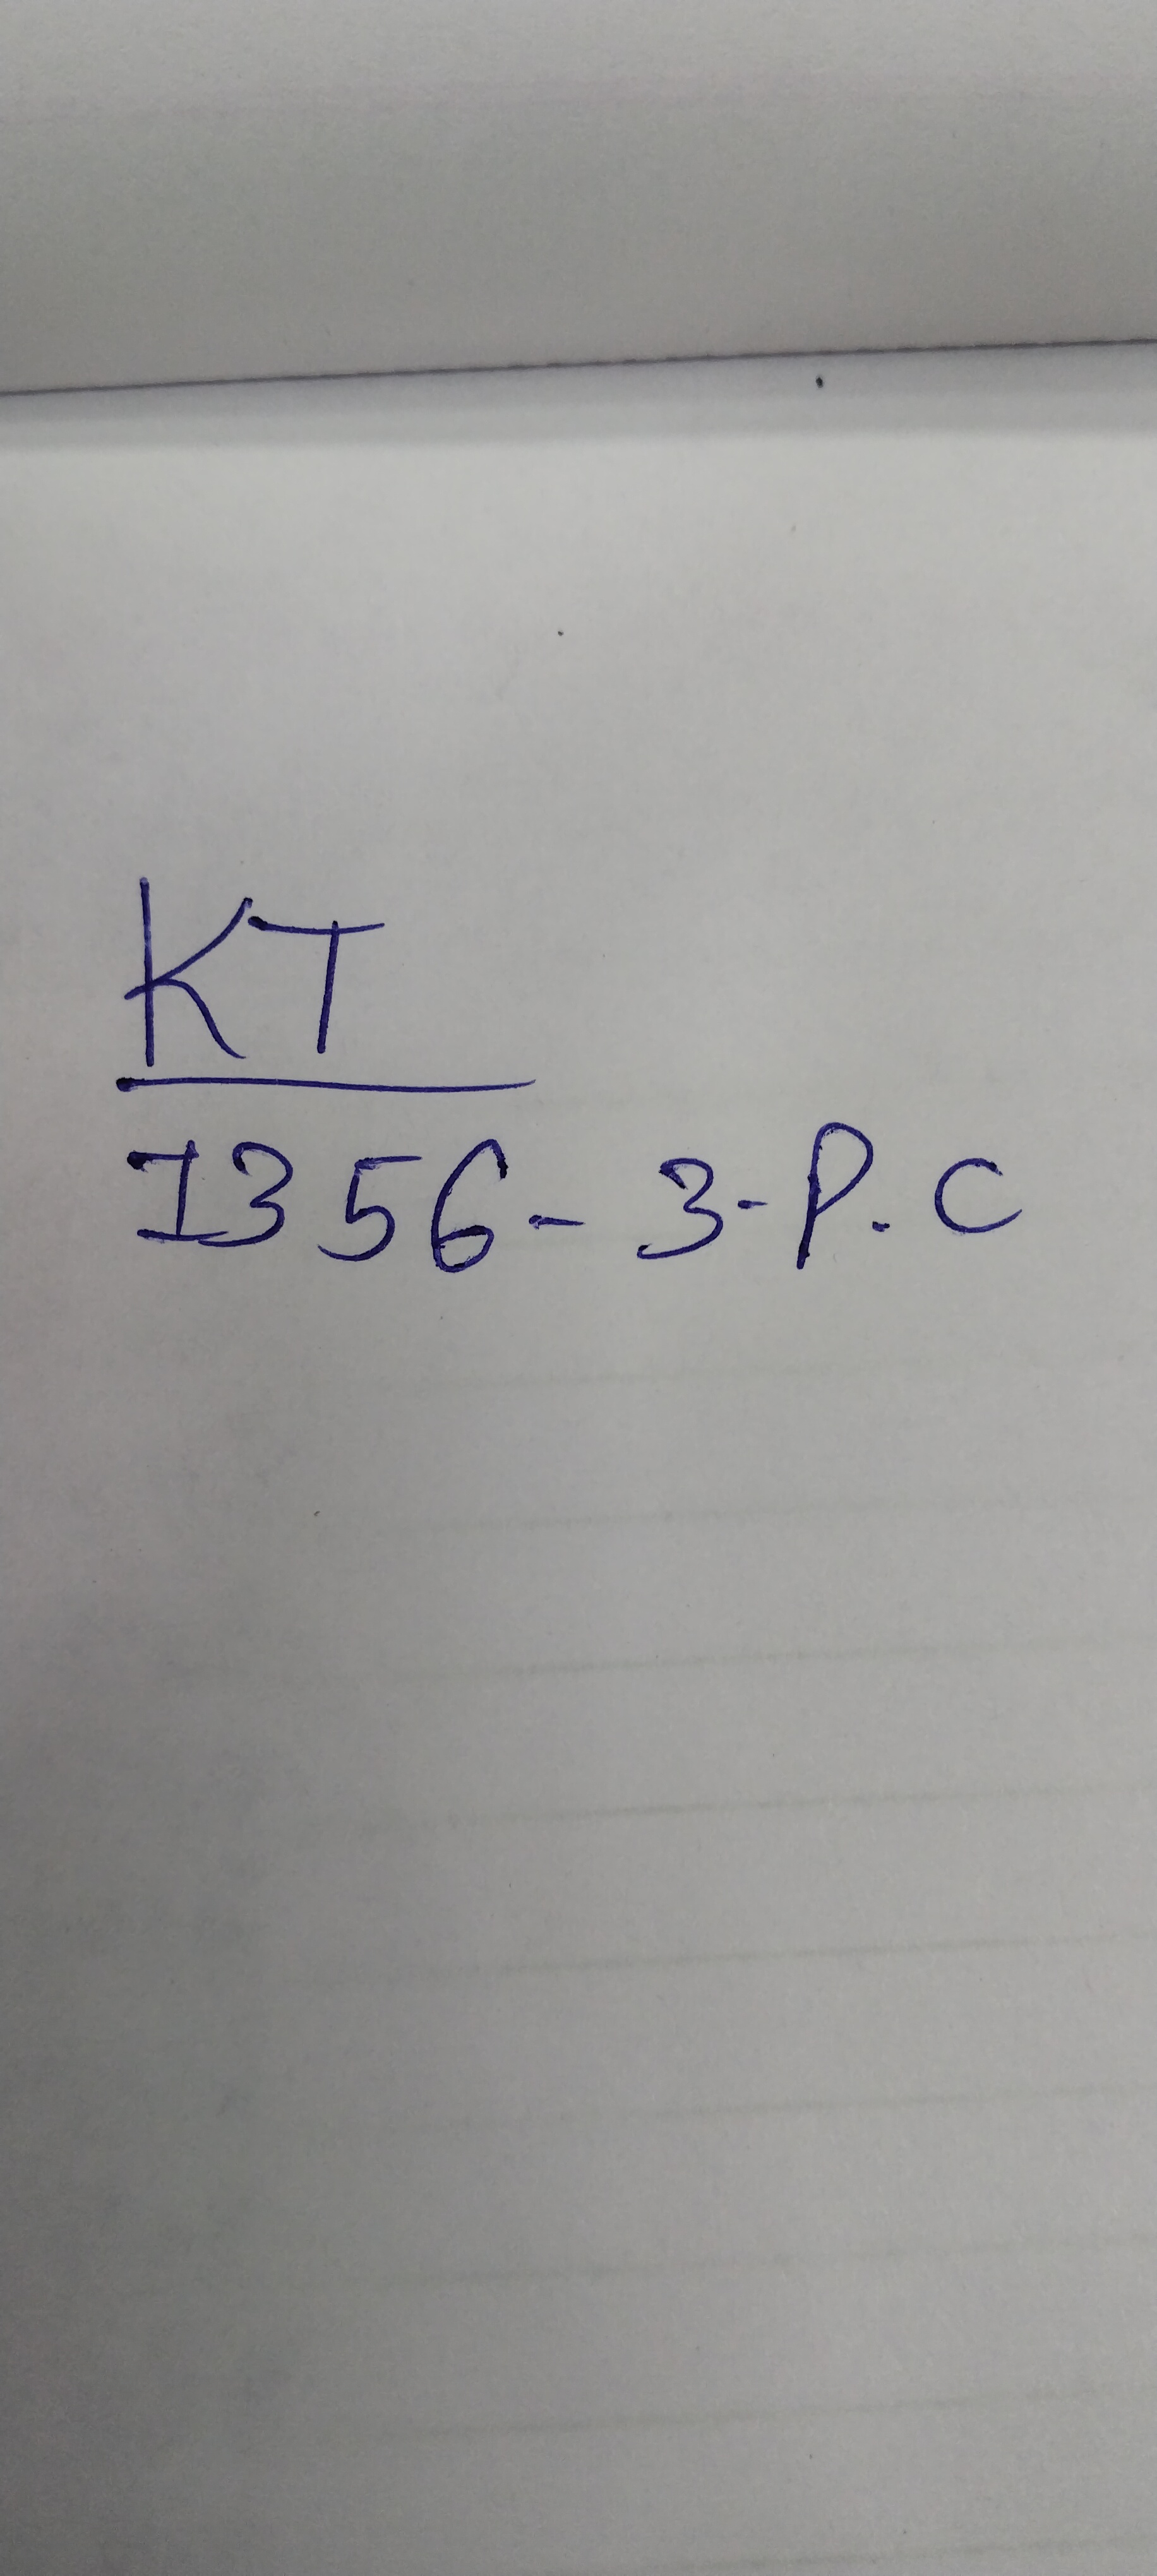 KT
1356- 3-P.C